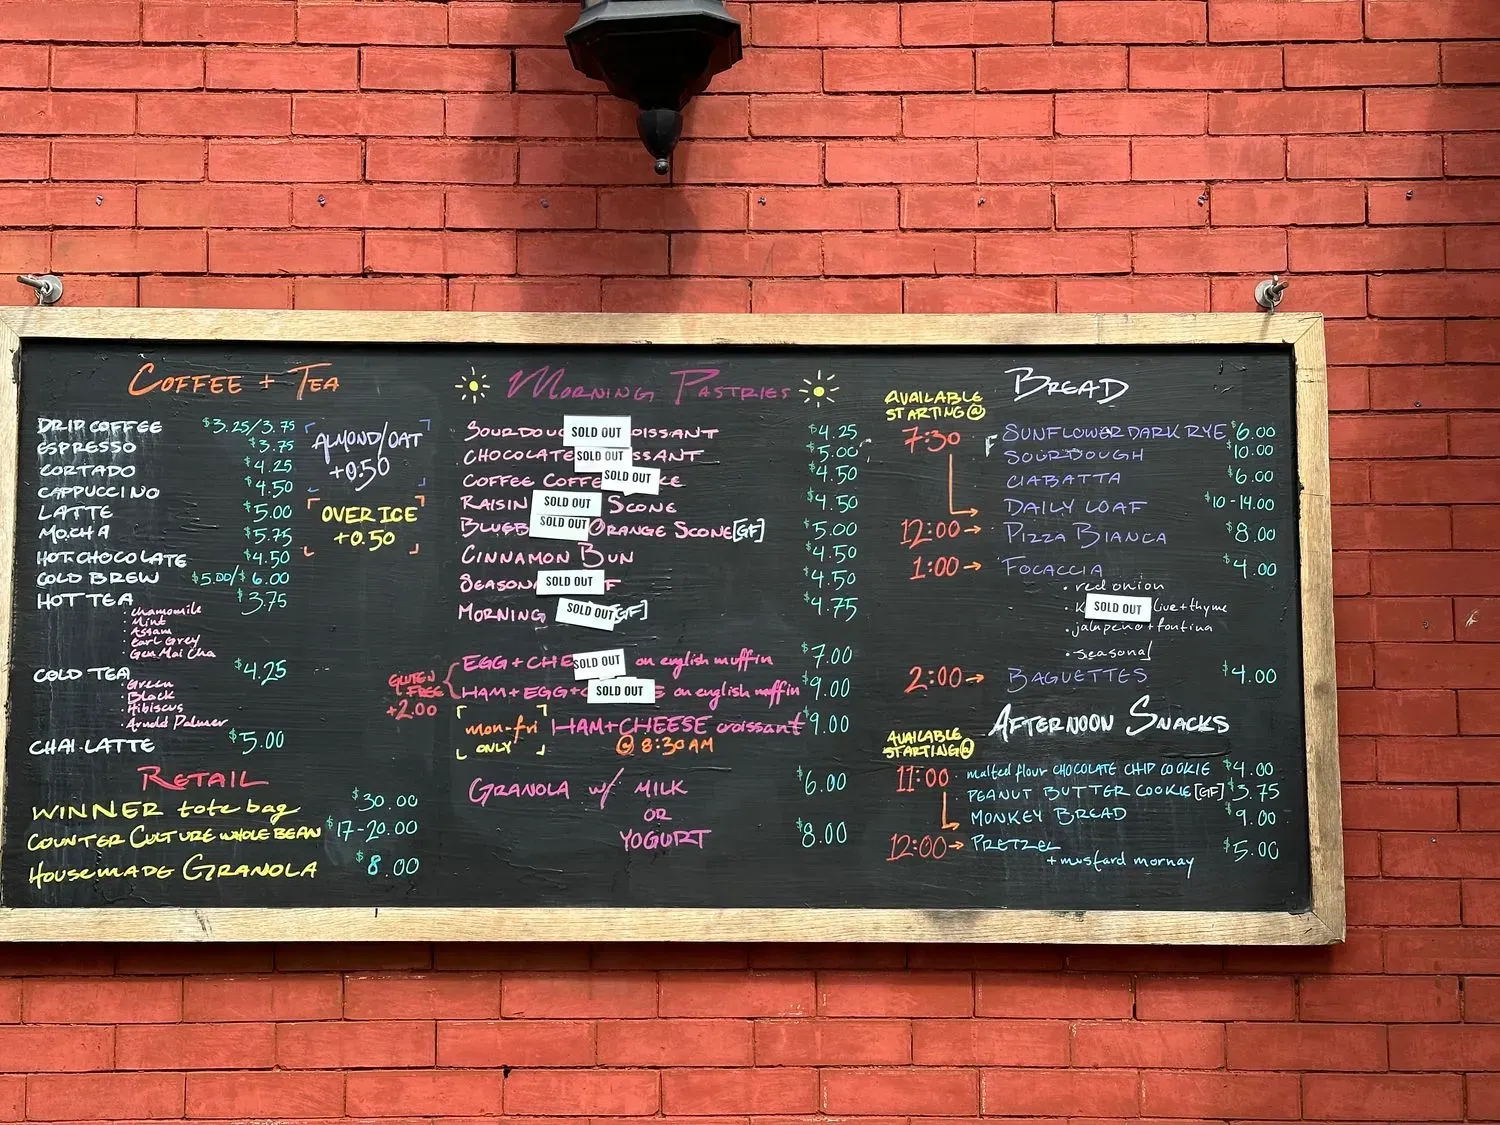 COFFEE + TEA
DRIP COFFEE $3.25/3.75
ESPRESSO $3.75
CORTADO $4.25
CAPPUCCINO $4.50
LATTE $5.00
MOCHA $5.75
HOT CHOCOLATE $4.50
COLD BREW $5.00/$6.00
HOT TEA $3.75
· chamomile
· Mint
· Assam
· Earl Grey
· Gen Mai Cha
COLD TEA $4.25
· Green
· Black
· Hibiscus
· Arnold Palmer
CHAI LATTE $5.00
ALMOND/OAT
+0.50
OVER ICE
+0.50
RETAIL
WINNER tote bag $30.00
COUNTER CULTURE WHOLE BEAN $17-20.00
HOUSEMADE GRANOLA $8.00
MORNING PASTRIES
SOURDOU SOLD OUT OISSANT $4.25
CHOCOLATE SOLD OUT SSANT $5.00
COFFEE COFFE SOLD OUT KE $4.50
RAISIN SOLD OUT SCONE $4.50
BLUEB SOLD OUT ORANGE SCONE [GF] $5.00
CINNAMON BUN $4.50
SEASONA SOLD OUT F $4.50
MORNING SOLD OUT [GF] $4.75
GLUTEN FREE +2.00
EGG + CHE SOLD OUT on english muffin $7.00
HAM + EGG + C SOLD OUT E on english muffin $9.00
mon-fri ONLY HAM + CHEESE croissant $9.00
@ 8:30 AM
GRANOLA w/ MILK $6.00
OR
YOGURT $8.00
BREAD
AVAILABLE
STARTING @
7:30
SUNFLOWER DARK RYE $6.00
F SOURDOUGH $10.00
CIABATTA $6.00
DAILY LOAF $10-14.00
12:00 → PIZZA BIANCA $8.00
1:00 → FOCACCIA $4.00
· red onion
· K SOLD OUT live + thyme
· jalapeno + fontina
· seasonal
2:00 → BAGUETTES $4.00
AFTERNOON SNACKS
AVAILABLE
STARTING @
11:00 malted flour CHOCOLATE CHIP COOKIE $4.00
PEANUT BUTTER COOKIE [GF] $3.75
MONKEY BREAD $9.00
12:00 → PRETZEL $5.00
+ mustard mornay